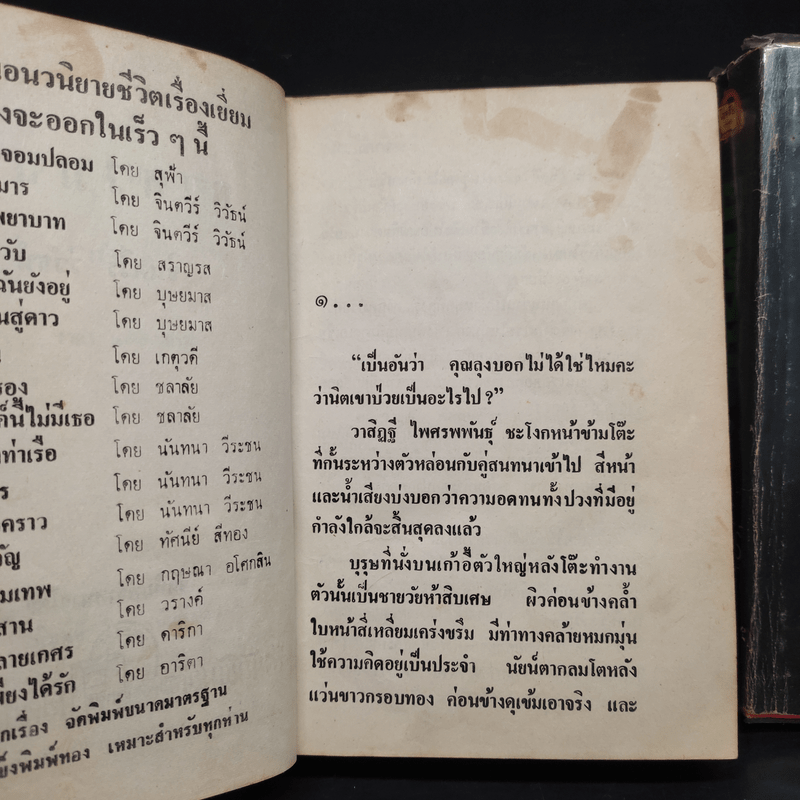 นวนิยายชีวิตเรื่องเยี่ยม
จะออกในเร็ว ๆ นี้
จอมปลอม โดย สุฟ้า
มาร โดย จินตวีร์ วิวัธน์
พยาบาท โดย จินตวีร์ วิวัธน์
โดย สราญรส
ยังอยู่ โดย บุษยมาส
สู่ดาว โดย บุษยมาส
โดย เกตุวดี
โดย ชลาลัย
นี้ไม่มีเธอ โดย ชลาลัย
ท่าเรือ โดย นันทนา วีระชน
โดย นันทนา วีระชน
คราว โดย นันทนา วีระชน
โดย ทัศนีย์ สีทอง
โดย กฤษณา อโศกสิน
โดย วรางค์
โดย ดาริกา
ได้รัก โดย อาริตา
เรื่อง จัดพิมพ์ขนาดมาตรฐาน
พิมพ์ทอง เหมาะสำหรับทุกท่าน
๑...
“เป็นอันว่า คุณลุงบอกไม่ได้ใช่ไหมคะ
ว่านิตเขาป่วยเป็นอะไรไป ?”
วาสิฏฐี ไพศรพพันธุ์ ชะโงกหน้าข้ามโต๊ะ
ที่กั้นระหว่างตัวหล่อนกับคู่สนทนาเข้าไป สีหน้า
และน้ำเสียงบ่งบอกว่าความอดทนทั้งปวงที่มีอยู่
กำลังใกล้จะสิ้นสุดลงแล้ว
บุรุษที่นั่งบนเก้าอี้ตัวใหญ่หลังโต๊ะทำงาน
ตัวนั้นเป็นชายวัยห้าสิบเศษ ผิวค่อนข้างคล้ำ
ใบหน้าสี่เหลี่ยมเคร่งขรึม มีท่าทางคล้ายหมกมุ่น
ใช้ความคิดอยู่เป็นประจำ นัยน์ตากลมโตหลัง
แว่นขาวกรอบทอง ค่อนข้างดุเข้มเอาจริง และ